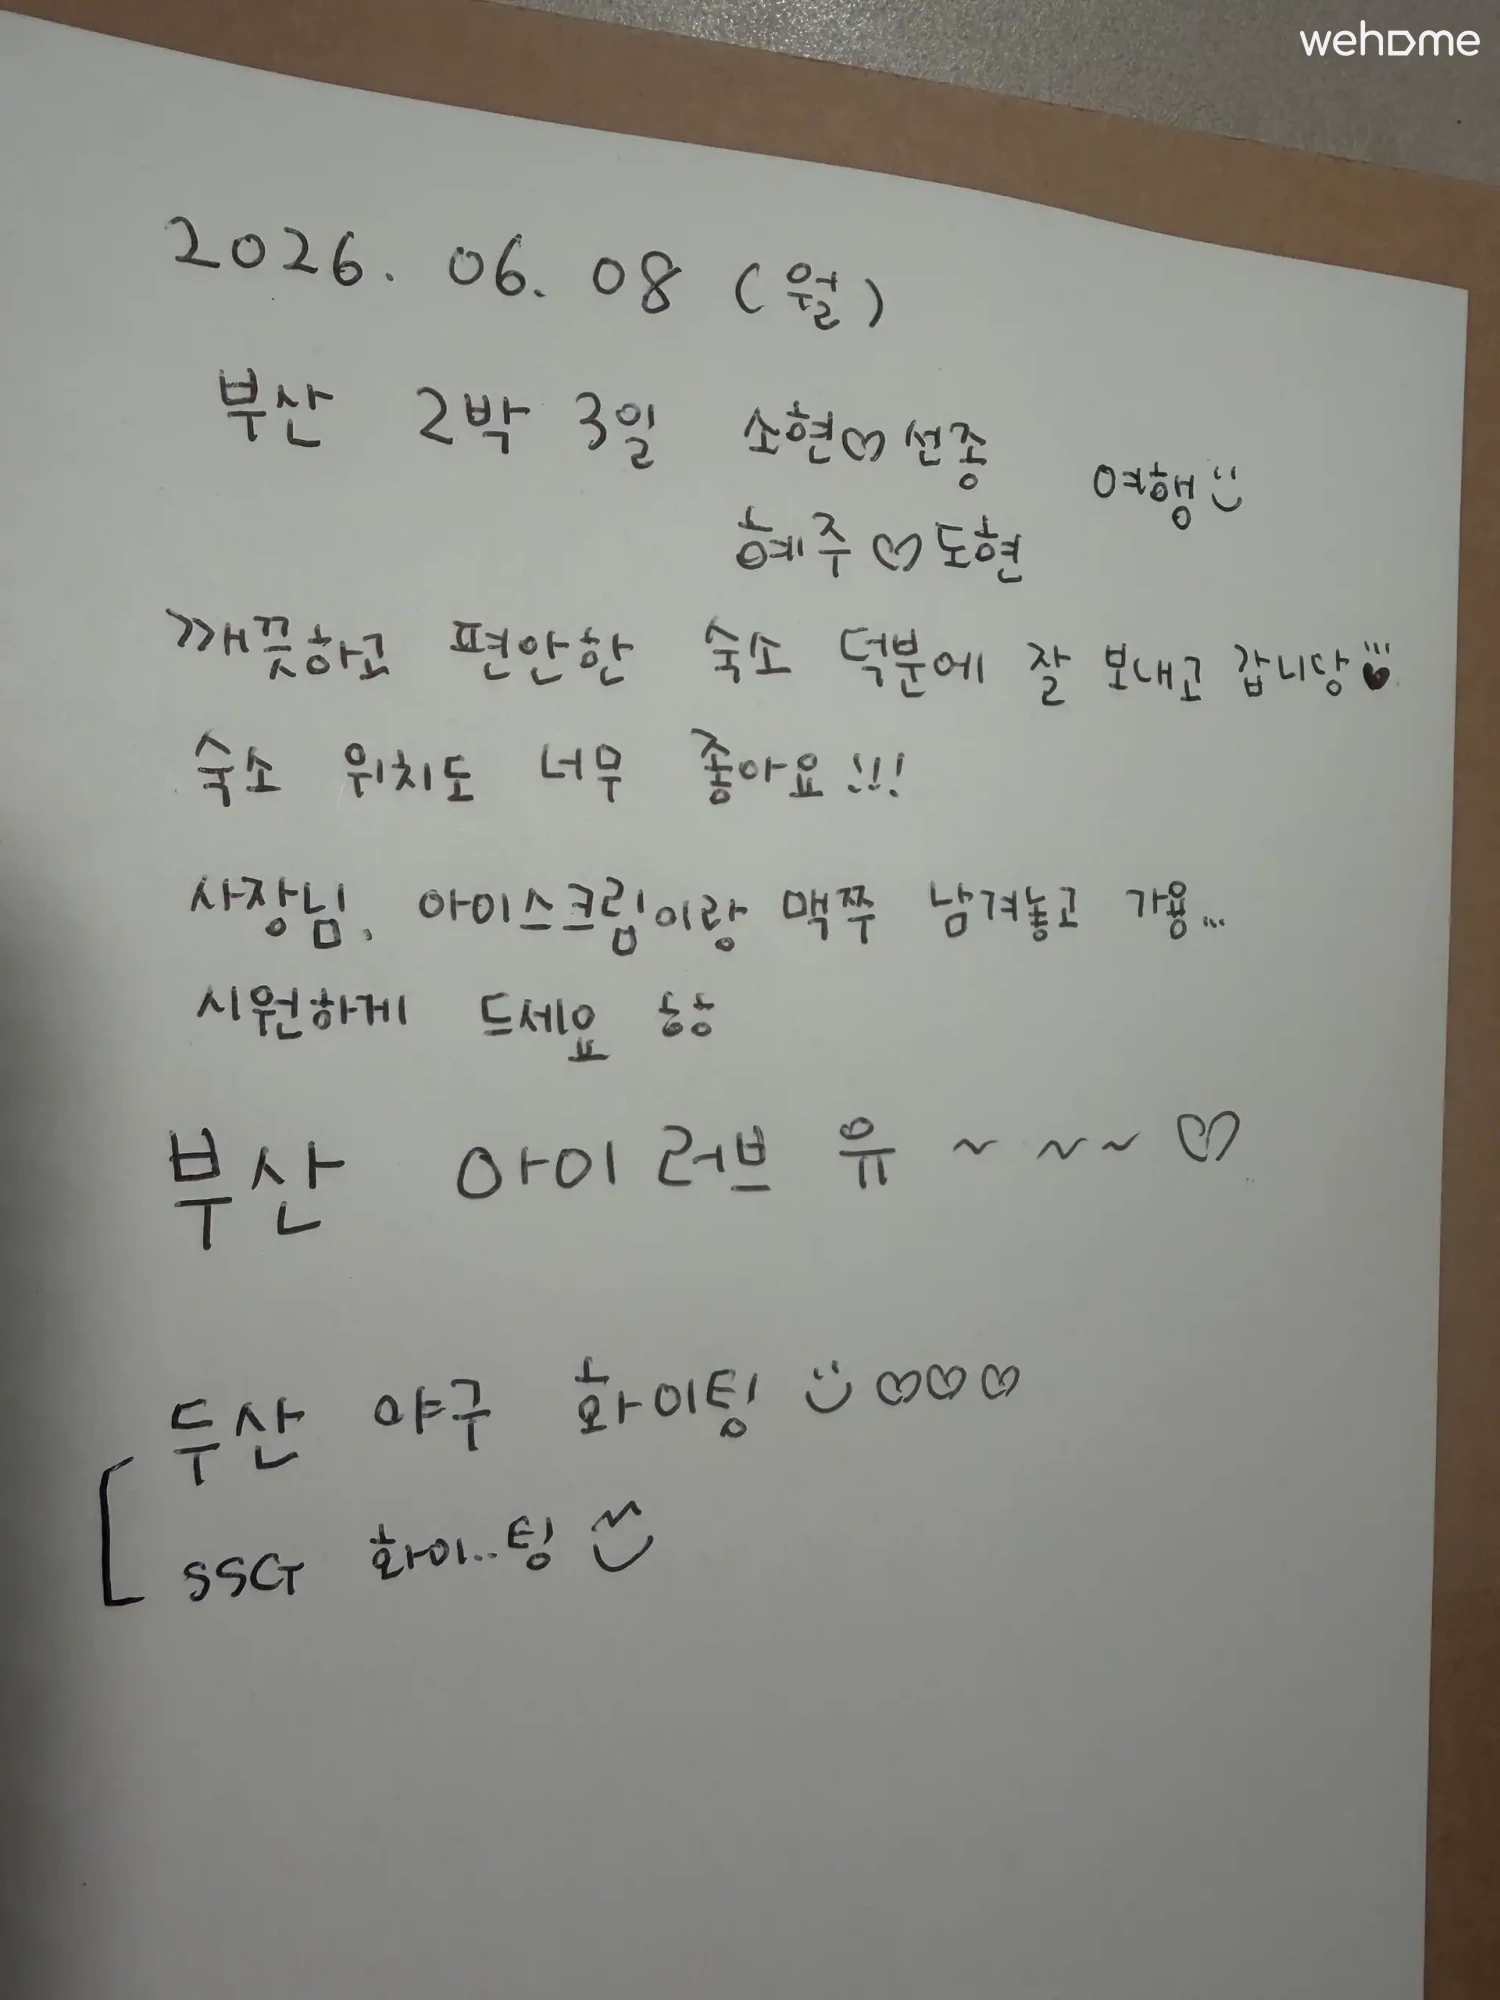 wehome
2026. 06. 08 (월)
부산 2박 3일 소현♡선종 여행
혜주♡도현
깨끗하고 편안한 숙소 덕분에 잘 보내고 갑니당♥
숙소 위치도 너무 좋아요!!!
사장님, 아이스크림이랑 맥쭈 남겨놓고 가용...
시원하게 드세요 항
부산 아이 러브 유 ~ ~ ~ ♡
두산 야구 화이팅 ♡♡♡
SSG 화이..팅